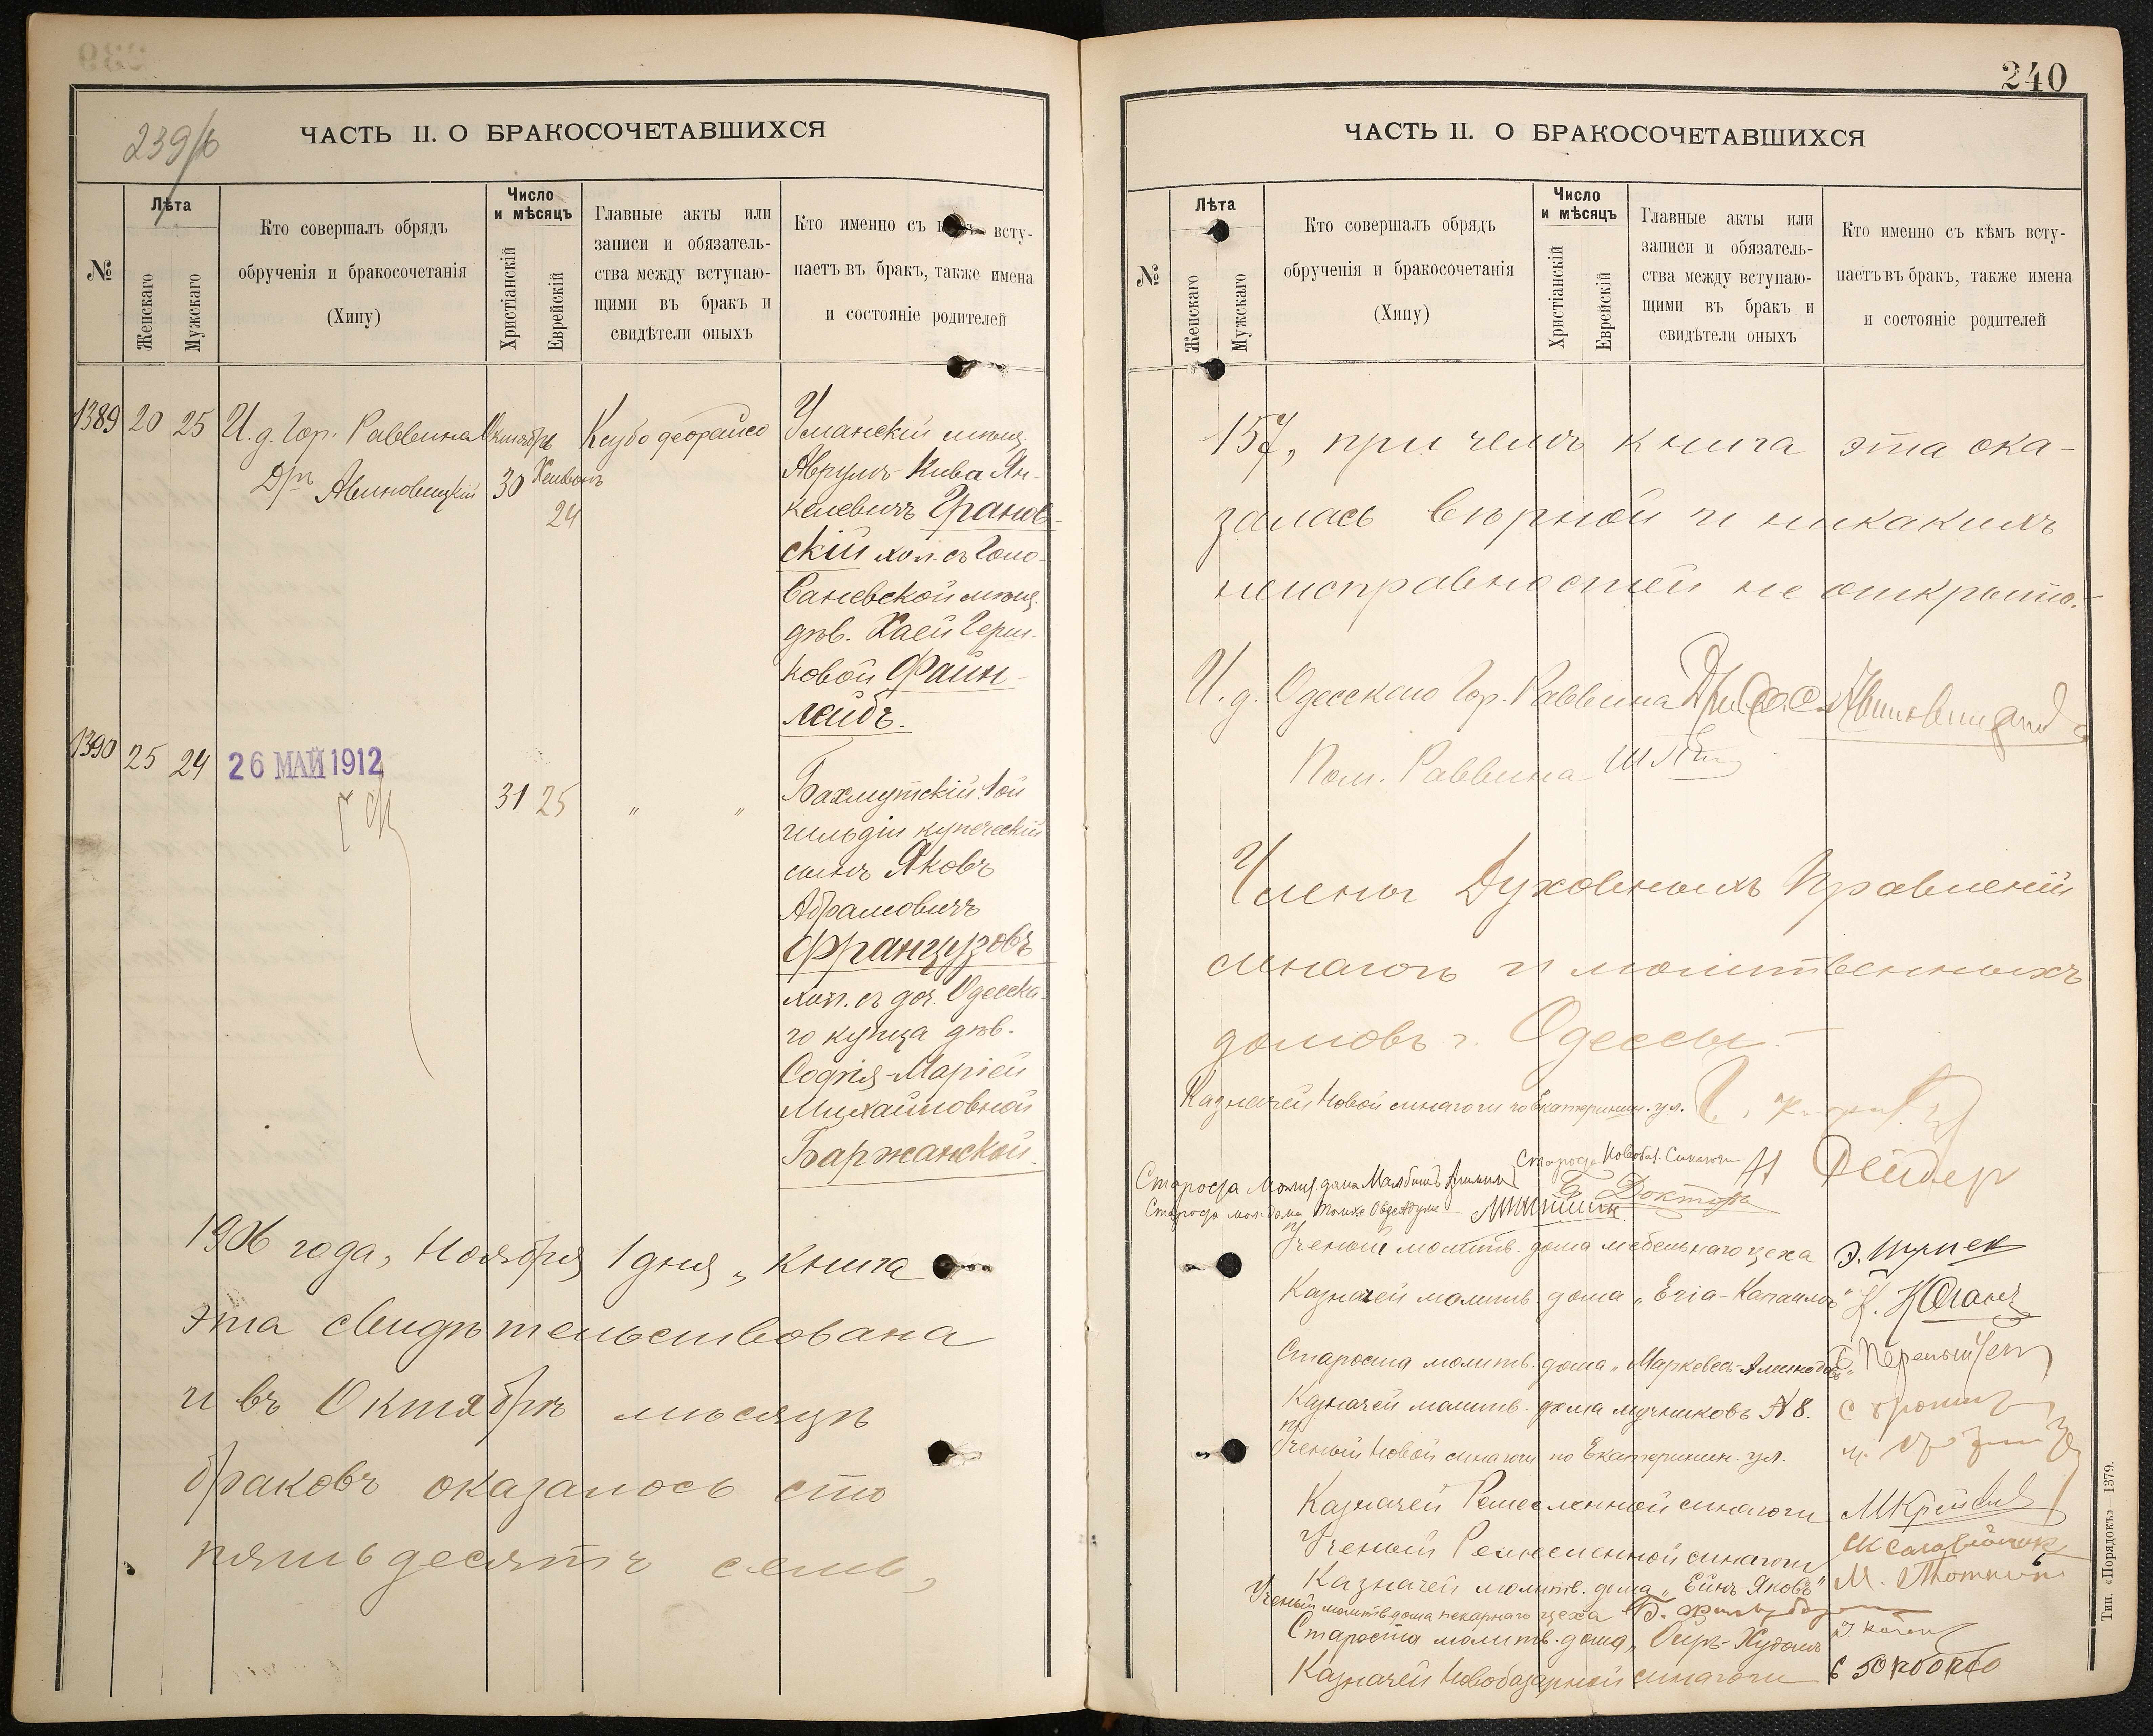 239/б
ЧАСТЬ II. О БРАКОСОЧЕТАВШИХСЯ
№
Лѣта
Женскаго
Мужскаго
Кто совершалъ обрядъ
обрученія и бракосочетанія
(Хипу)
Число
и мѣсяцъ
Христіанскій
Еврейскій
Главные акты или
записи и обязатель-
ства между вступаю-
щими въ бракъ и
свидѣтели оныхъ
Кто именно съ всту-
паетъ въ бракъ, также имена
и состояніе родителей
1389
20
25
И. д. Гор. Раввина
Дръ Авиновицкій
Октябрь
30
Хешвонъ
24
Уманскій мѣщ.
Аврумъ-Кива Ян-
келевичъ Гранов-
скій хол. съ Голо-
ваневской мѣщ.
дѣв. Хаей Герш-
ковой Файн-
лейбъ.
1390
25
24
26 МАЙ 1912
31
25
" "
Бахмутскій 1ой
гильдіи купеческій
сынъ Яковъ
Абрамовичъ
Французовъ
хол. съ доч. Одесска-
го купца дѣв.
Софія-Маріей
Михайловной
Баржанской.
1906 года, Ноября 1 дня, книга
эта свидѣтельствована
и въ Октябрѣ мѣсяцѣ
браковъ оказалось сто
пятьдесятъ семь,
240
ЧАСТЬ II. О БРАКОСОЧЕТАВШИХСЯ
№
Лѣта
Женскаго
Мужскаго
Кто совершалъ обрядъ
обрученія и бракосочетанія
(Хипу)
Число
и мѣсяцъ
Христіанскій
Еврейскій
Главные акты или
записи и обязатель-
ства между вступаю-
щими въ бракъ и
свидѣтели оныхъ
Кто именно съ кѣмъ всту-
паетъ въ бракъ, также имена
и состояніе родителей
157, при чемъ книга эта ока-
залась вѣрной и никакихъ
неисправностей не открыто.-
И. д. Одесскаго Гор. Раввина
Пом. Раввина
Члены Духовныхъ Правленій
синагогъ и молитвенныхъ
домовъ г. Одессы.-
Казначей Новой синагоги по Екатеринин. ул.
Староста Новобаз. Синагоги
Староста Молит. дома Малбишъ Арумимъ
Б Докторъ
Староста мол. дома
Ученый молитв. дома мебельнаго цеха
Казначей молитв. дома
Староста молитв. дома
Казначей молитв. дома мучниковъ № 8.
Ученый Новой синагоги по Екатеринин. ул.
Казначей Ремесленной синагоги
Ученый Ремесленной синагоги
Казначей молитв. дома „Ейнъ-Яковъ"
Ученый молитв дома пекарнаго цеха
Староста молитв. дома
Казначей Новобазарной синагоги
Тип. «Порядокъ»—1379.